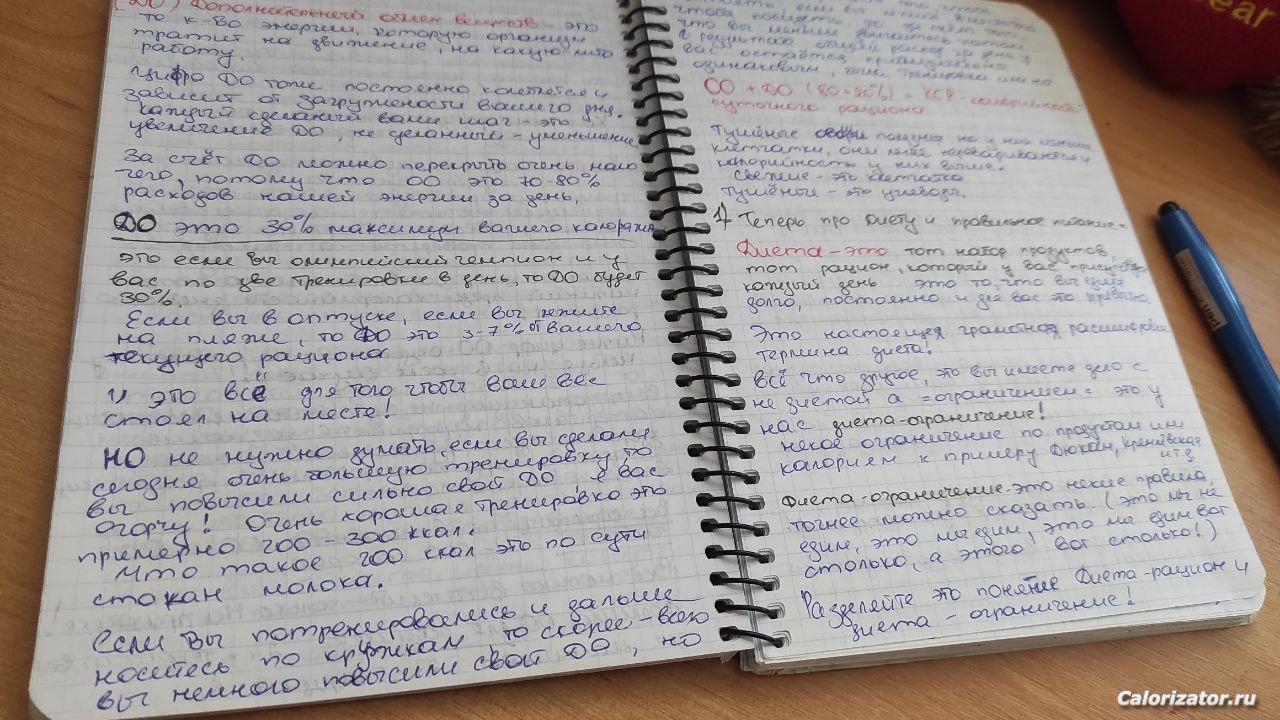 (ДО) Дополнительный обмен веществ это
то к-во энергии, которую организм
тратит на движение, на какую либо
работу.
Цифра ДО тоже постоянно колеблется и
зависит от загруженности вашего дня.
каждый сделанный вами шаг - это
увеличение ДО, не сделанный - уменьшение
За счёт ДО можно перекрыть очень мало
чего, потому что ОО это 70-80%
расходов нашей энергии за день,
ДО это 30% максимум вашего калоража
это если вы олимпийский чемпион и у
вас по две тренировки в день, то ДО будет
30%.
Если вы в отпуске, если вы лежите
на пляже, то ДО это 3-7% от вашего
текущего рациона
1) это всё для того чтобы ваш вес
стоял на месте!
НО не нужно думать, если вы сделали
сегодня очень большую тренировку, то
вы повысили сильно свой ДО я вас
огорчу! Очень хорошая тренировка это
примерно 200 - 300 ккал.
Что такое 200 ккал это по сути
стакан молока.
Если вы потренировались и дальше
носитесь по кружкам то скорее-всего
вы немного повысили свой ДО, но
что вы меньше двигались потом
в результате общий расход за день у
вас остаётся
одинаковым,
ОО + ДО (20-25%) = КСР калорийность
суточного рациона
Тушёные овощи полезны но у них меньше
клетчатки, они легче перевариваются и
калорийность у них выше.
Свежие - это клетчатка
Тушёные - это углеводы.
1) Теперь про Диету и правильное питание-
Диета - это тот набор продуктов,
тот рацион, который у вас присутствует
каждый день это то, что вы едите
долго, постоянно и для вас это привычно
Это настоящая грамотная расшифровка
термина диета.
всё что другое, это вы имеете дело с
не диетой а =ограничением= это у
нас диета-ограничение!
некое ограничение по продуктам или
калориям к примеру Дюкан, кремлёвская
и т.д
Диета-ограничение-это некие правила,
точнее можно сказать. (это мы не
едим, это мы едим, это мы едим вот
столько, а этого вот столько!)
Разделяйте это понятие Диета-рацион и
диета - ограничение!
Bear
Calorizator.ru